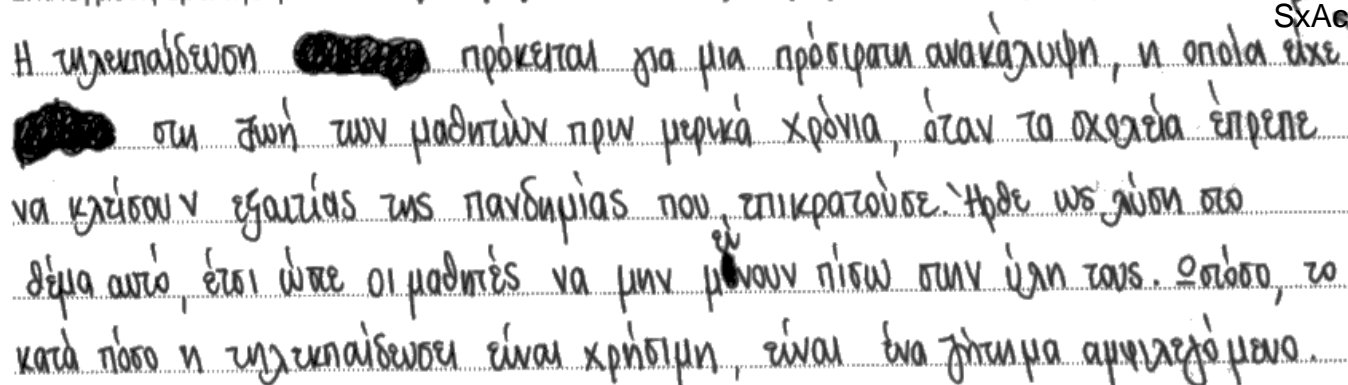 SxAc
Η τηλεκπαίδευση πρόκειται για μια πρόσφατη ανακάλυψη, η οποία είχε
στη ζωή των μαθητών πριν μερικά χρόνια, όταν τα σχολεία έπρεπε
να κλείσουν εξαιτίας της πανδημίας που επικρατούσε. Ήρθε ως λύση στο
θέμα αυτό, έτσι ώστε οι μαθητές να μην μείνουν πίσω στην ύλη τους. Ωστόσο, το
κατά πόσο η τηλεκπαίδευσει είναι χρήσιμη, είναι ένα ζήτημα αμφιλεγόμενο.